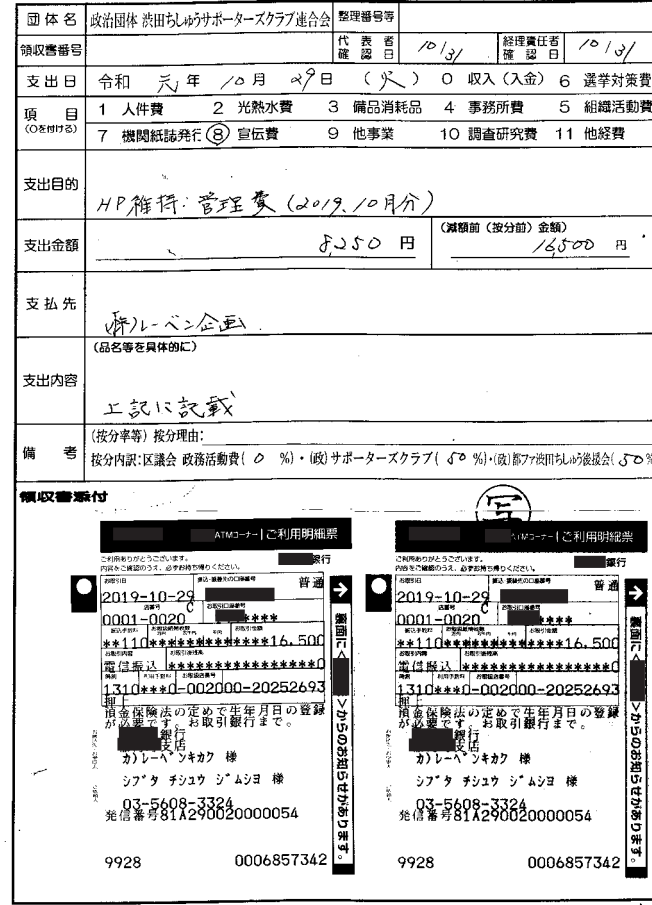 団体名 政治団体 渋田ちしゅうサポーターズクラブ連合会 整理番号等
領収書番号 代表者確認日 10/31 経理責任者確認日 10/31
支出日 令和 元年 10月 29日 (火) 0 収入(入金) 6 選挙対策費
項目 (○を付ける) 1 人件費 2 光熱水費 3 備品消耗品 4 事務所費 5 組織活動費
7 機関紙誌発行 ⑧ 宣伝費 9 他事業 10 調査研究費 11 他経費
支出目的 HP維持・管理費(2019.10月分)
支出金額 8,250 円 (減額前(按分前)金額) 16,500 円
支払先 (株)レーベン企画
支出内容 (品名等を具体的に)
上記に記載
備考 (按分率等)按分理由:
按分内訳:区議会 政務活動費( 0 %)・(政)サポーターズクラブ( 50 %)・(政)都ファ渋田ちしゅう後援会( 50 %
領収書添付
写
ATMコーナー ご利用明細票
ご利用ありがとうございます。
内容をご確認のうえ、必ずお持ち帰りください。
銀行
お取引日 振込・振替先の口座番号 普通
2019-10-29
店番号 お取引口座番号
0001-0020 C ****
振込手数料 お取扱紙幣枚数 お取引金額
**110**************16,500
お取引内容 お取引後残高
電信振込 ******************0
時刻 利用手数料 お取扱店番号
1310***0-002000-20252693
押上
預金保険法の定めで生年月日の登録
が必要です。お取引銀行まで。
銀行
支店
カ)レーベンキカク 様
シブタ チシユウ ジムシヨ 様
03-5608-3324
発信番号81A290020000054
9928 0006857342
裏面に< >からのお知らせがあります。
ATMコーナー ご利用明細票
ご利用ありがとうございます。
内容をご確認のうえ、必ずお持ち帰りください。
銀行
お取引日 振込・振替先の口座番号 普通
2019-10-29
店番号 お取引口座番号
0001-0020 C ****
振込手数料 お取扱紙幣枚数 お取引金額
**110**************16,500
お取引内容 お取引後残高
電信振込 ******************0
時刻 利用手数料 お取扱店番号
1310***0-002000-20252693
押上
預金保険法の定めで生年月日の登録
が必要です。お取引銀行まで。
銀行
支店
カ)レーベンキカク 様
シブタ チシユウ ジムシヨ 様
03-5608-3324
発信番号81A290020000054
9928 0006857342
裏面に< >からのお知らせがあります。